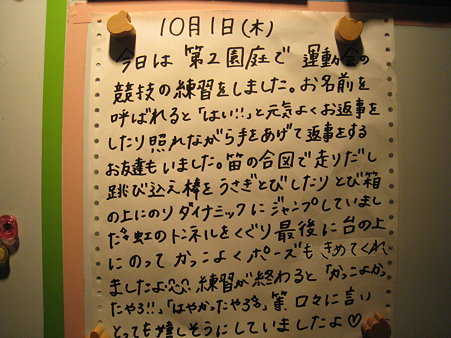 10月1日(木)
今日は 第2園庭で 運動会の
競技の練習をしました。お名前を
呼ばれると「はい!!」と元気よくお返事を
したり 照れながら手をあげて返事をする
お友達もいました。笛の合図で走りだし
跳び込え棒をうさぎとびしたり とび箱
の上にのり ダイナミックに ジャンプしていまし
た 虹のトンネルをくぐり 最後に 台の上
にのって かっこよく ポーズも きめてくれ
ましたよ 練習が終わると「かっこよかっ
たやろ!!」「はやかったやろ」等、口々に言い
とっても嬉しそうにしていましたよ♡